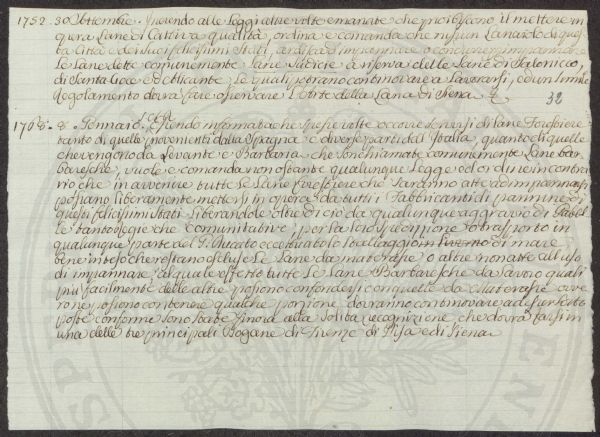 1752. 30 Settembre. Inerendo alle Leggi altre volte emanate che proibiscono il mettere in
opera Lane di Cattiva qualità, ordina e comanda che nissun Lanardo di questa
Città e dei suoi felicissimi Stati, ardisca d'impannare o condurre impannare
Le Lane dette comunemente Lane Sudicie a riserva delle Lane di Salonicco,
di Santa Croce ed Otticante, Le quali potranno continovare a Lavorarsi, ed un simile
Regolamento dovrà fare osservare L'Arte della Lana di Siena
32
1768. 8. Gennaio. Essendo informata che spesse volte occorre servirsi di Lane Forestiere
tanto di quelle provenienti dalla Spagna e diverse parti d'Italia, quanto di quelle
che vengono da Levante e Barbaria che son chiamate comunemente Lane Bar-
baresche, vuole e comanda non ostante qualunque Legge od ordine in contra
rio che in avvenire tutte Le Lane forestiere che saranno atte ad impannarsi
possano liberamente mettersi in opera da tutti i Fabbricanti di pannine di
questi felicissimi Stati Liberandole oltre di ciò da qualunque aggravio di Gabel
le tanto regie che comunitative, per la loro spedizione o trasporto in
qualunque parte del G. Ducato eccettuato lo Stallaggio in Livorno di mare
bene inteso che restano escluse Le Lane da materasse o altre non atte all'uso
di impannare, al quale effetto tutte Le Lane Barbaresche da lavoro quali
più facilmente delle altre possono confondersi con quelle da Materasse ovve
ro ne possono contenere qualche porzione dovranno continovare ad esser sotto
poste conforme sono state finora alla solita recognizione che dovrà farsi in
una delle tre principali Dogane di Firenze di Pisa e di Siena